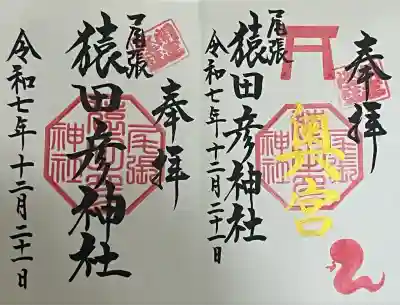 奉拝
尾張
猿田彦神社
令和七年十二月二十一日
奉拝
奥宮
尾張
猿田彦神社
令和七年十二月二十一日